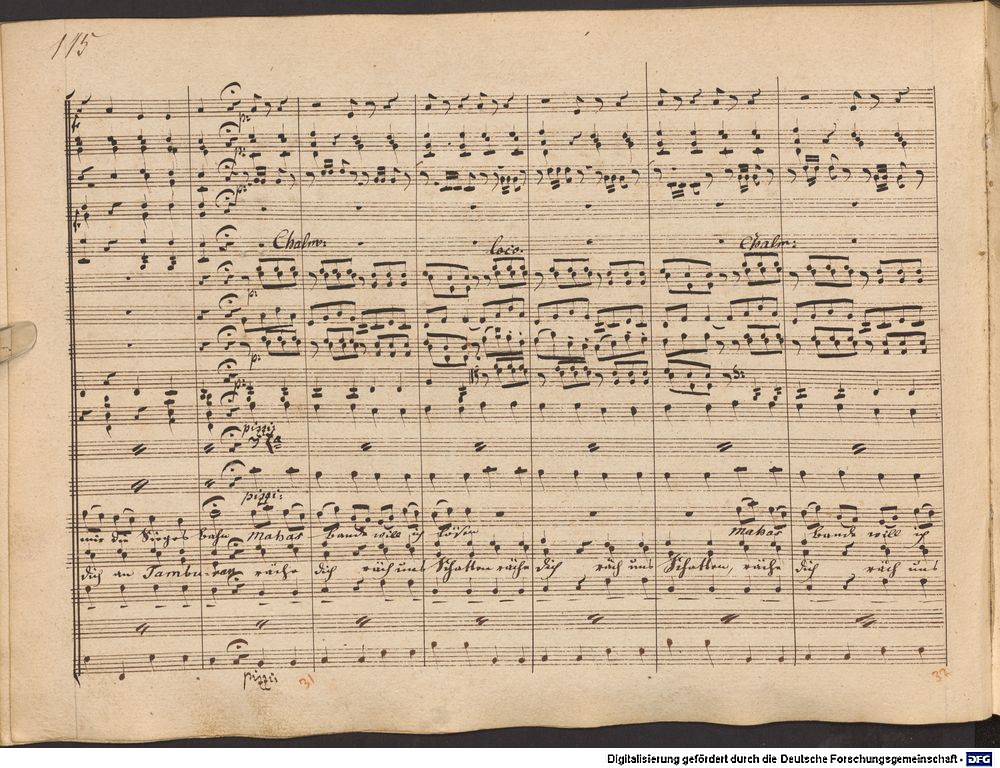 115
p:
p:
p:
Chalm: loco. Chalm:
p:
p.
p:
pizzi:
pizzi:
mir die Sieges bahn Mahas bande will ich lösen Mahas bande will ich
dich an Tambu-ran räche dich räch uns Schatten räche dich räch uns Schatten, räche dich räch uns
pizzi:
31 32
Digitalisierung gefördert durch die Deutsche Forschungsgemeinschaft - DFG